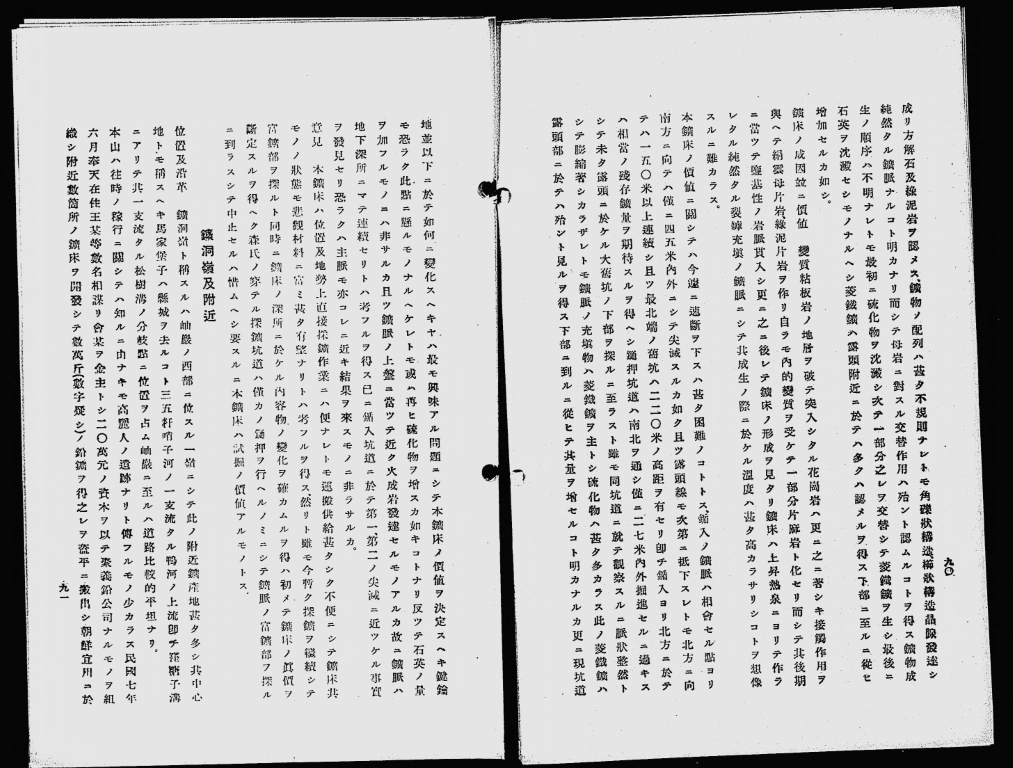 九〇
成リ方解石及綠泥岩ヲ認メス、鑛物ノ配列ハ甚タ不規則ナレトモ角礫狀構造、櫛狀構造晶腺發達シ
純然タル鑛脈ナルコト明カナリ而シテ母岩ニ對スル交替作用ハ殆ント認ムルコトヲ得ス鑛物成
生ノ順序ハ不明ナレトモ最初ニ硫化物ヲ沈澱シ次テ一部分之レヲ交替シテ菱鐵鑛ヲ生シ最後ニ
石英ヲ沈澱セシモノナルヘシ菱鐵鑛ハ露頭附近ニ於テハ多クハ認メルヲ得ス下部ニ至ルニ從ヒ
增加セルカ如シ。
鑛床ノ成因竝ニ價值　變質粘板岩ノ地層ヲ破テ突入シタル花崗岩ハ更ニ之ニ著シキ接觸作用ヲ
與ヘテ絹雲母片岩綠泥片岩ヲ作リ自ラモ內的變質ヲ受ケテ一部分片麻岩ト化セリ而シテ其後期
ニ當ツテ鹽基性ノ岩脈貫入シ更ニ之ニ後レテ鑛床ノ形成ヲ見タリ鑛床ハ上昇熱泉ニヨリテ作ラ
レタル純然タル裂罅充塡ノ鑛脈ニシテ其成生ノ際ニ於ケル溫度ハ甚タ高カラサリシコトヲ想像
スルニ難カラス。
本鑛床ノ價值ニ關シテハ今遽ニ速斷ヲ下スハ甚タ困難ノコトトス、𨫤入ノ鑛脈ハ相會セル點ヨリ
南方ニ向テハ僅ニ四五米內外ニシテ尖滅スルカ如ク且ツ露頭線モ次第ニ抵下スレトモ北方ニ向
テハ一五〇米以上連續シ且ツ最北端ノ舊坑ハ二二〇米ノ高距ヲ有セリ卽チ𨫤入ヨリ北方ニ於テ
ハ相當ノ殘存鑛量ヲ期待スルヲ得ヘシ𨫤押坑道ハ南北ヲ通シ僅ニ二七米內外掘進セルニ過キス
シテ未タ露頭ニ於ケル大舊坑ノ下部ヲ探ルニ至ラスト雖モ同坑道ニ就テ觀察スルニ脈狀整然ト
シテ膨縮著シカラサレトモ鑛脈ノ充塡物ハ菱鐵鑛ヲ主トシ硫化物ハ甚タ多カラス此ノ菱鐵鑛ハ
露頭部ニ於テハ殆ント見ルヲ得ス下部ニ到ルニ從ヒテ其量ヲ增セルコト明カナルカ更ニ現坑道
地並以下ニ於テ如何ニ變化スヘキヤハ最モ興味アル問題ニシテ本鑛床ノ價值ヲ決定スヘキ鍵鑰
モ恐ラク此點ニ懸ルモノナルヘケレトモ或ハ再ヒ硫化物ヲ增スカ如キコトナリ反ツテ石英ノ量
ヲ加フルモノニハ非サルカ且ツ鑛脈ノ上盤ニ當ツテ近ク火成岩發達セルモノアルカ故ニ鑛脈ハ
地下深所ニマテ連續セリトハ考フルヲ得ス已ニ𨫤入坑道ニ於テ第一第二ノ尖滅ニ近ツケル事實
ヲ發見セリ恐ラクハ主脈モ亦コレニ近キ結果ヲ來スモノニ非ラサルカ。
意見　本鑛床ハ位置及地勢上直接採鑛作業ニハ便ナレトモ運搬供給甚タシク不便ニシテ鑛床共
モノノ狀態モ悲觀材料ニ富ミ甚タ有望ナリトハ考フルヲ得ス、然リト雖モ今暫ク探鑛ヲ繼續シテ
富鑛部ヲ探ルト同時ニ鑛床ノ深所ニ於ケル內容物ノ變化ヲ確カムルヲ得ハ初メテ鑛床ノ眞價ヲ
斷定スルヲ得ヘク森氏ノ穿テル探鑛坑道ハ僅カノ𨫤押ヲ行ヘルノミニシテ鑛脈ノ富鑛部ヲ探ル
ニ到ラスシテ中止セルハ惜ムヘシ要スルニ本鑛床ハ試掘ノ價值アルモノトス。
鑛洞嶺及附近
位置及沿革　鑛洞嶺ト稱スルハ岫巖ノ西部ニ位スル一嶺ニシテ此ノ附近鑛產地甚タ多シ共中心
地トモ稱スヘキ馬家堡子ハ縣城ヲ去ルコト三五粁哨子河ノ一支流タル鴨河ノ上流卽チ窪糖子溝
ニアリテ其一支流タル松樹溝ノ分岐點ニ位置ヲ占ム岫巖ニ至ルハ道路比較的平坦ナリ。
本山ハ往時ノ稼行ニ關シテハ知ルニ由ナキモ高麗人ノ遺跡ナリト傳フルモノ少カラス民國七年
六月奉天在住王某等數名相謀リ會某ヲ金主トシ二〇萬元ノ資本ヲ以テ聚義鉛公司ナルモノヲ組
織シ附近數箇所ノ鑛床ヲ開發シテ數萬斤(數字疑シ)ノ鉛鑛ヲ得之レヲ蓋平ニ搬出シ朝鮮宜川ニ於
九一